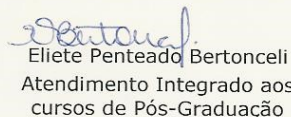 Eliete Penteado Bertonceli
Atendimento Integrado aos
cursos de Pós-Graduação